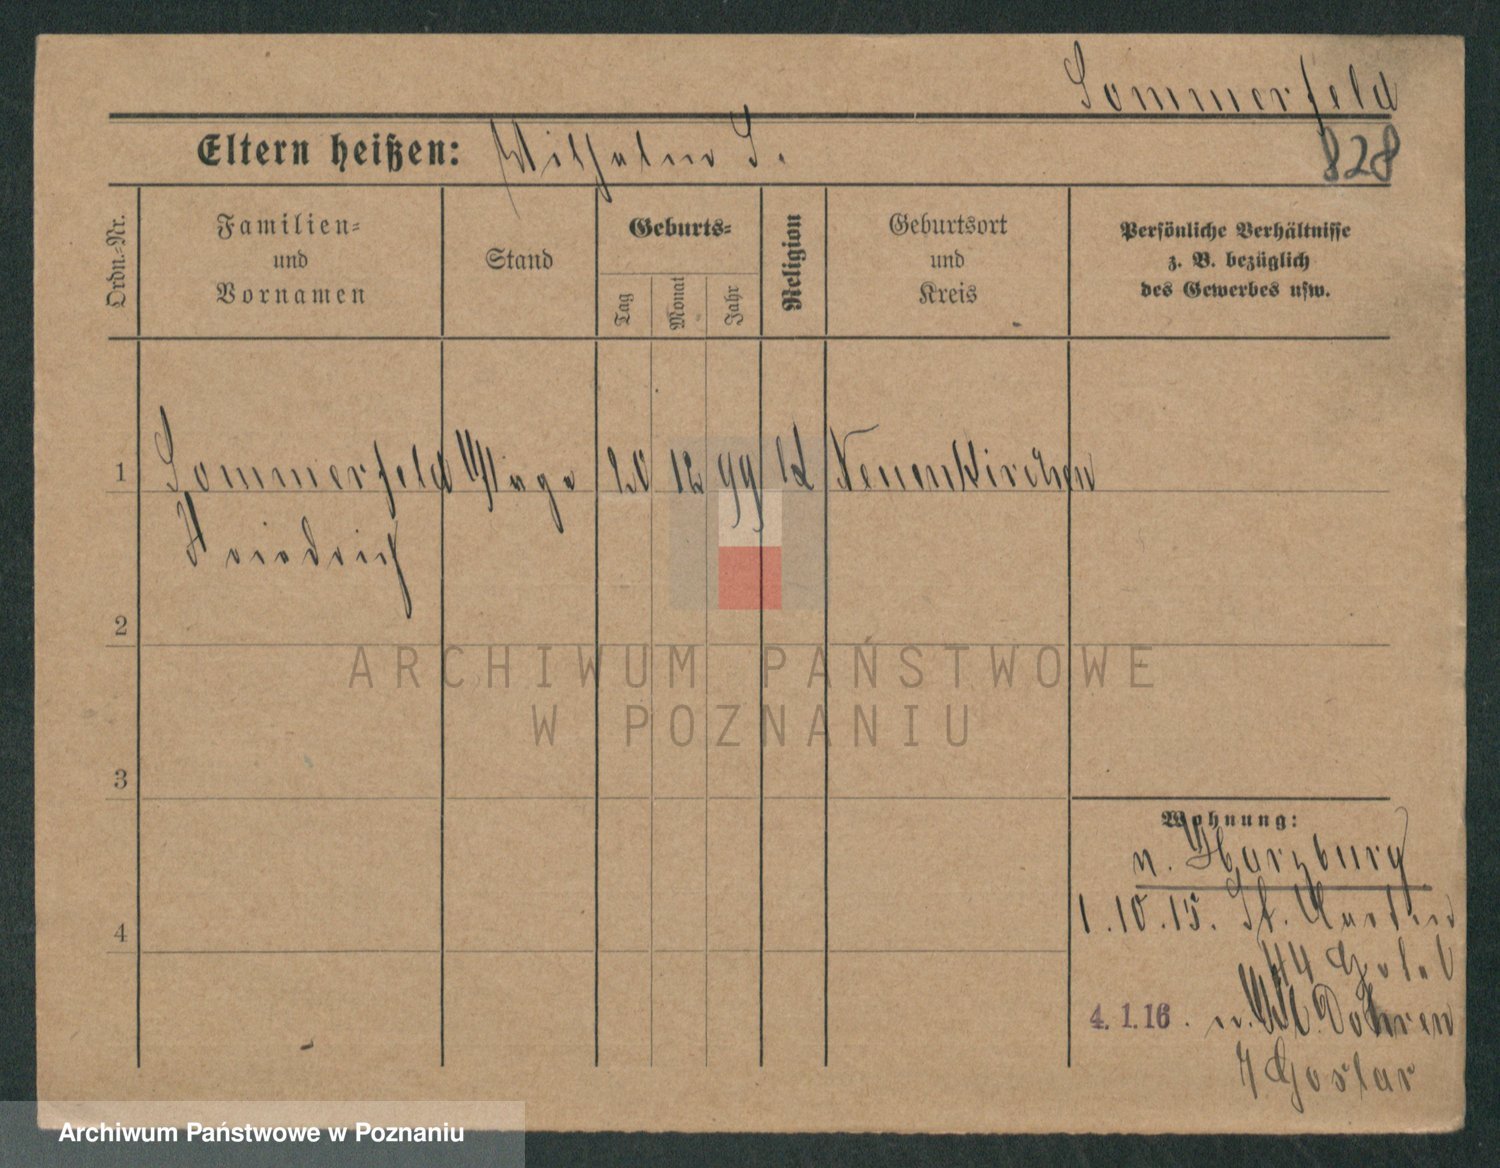 Sommerfeld
Eltern heißen: Wilhelm S.
828
Ordn.-Nr.
Familien-
und
Vornamen
Stand
Geburts-
Tag
Monat
Jahr
Religion
Geburtsort
und
Kreis
Persönliche Verhältnisse
z. B. bezüglich
des Gewerbes usw.
1 Sommerfeld 20 12 99 Neuenkirchen
Friedrich
2
3
4
Wohnung:
n. Harzburg
1.10.15. St.
44
4.1.16. n. Döhren
Goslar
ARCHIWUM PAŃSTWOWE
W POZNANIU
Archiwum Państwowe w Poznaniu